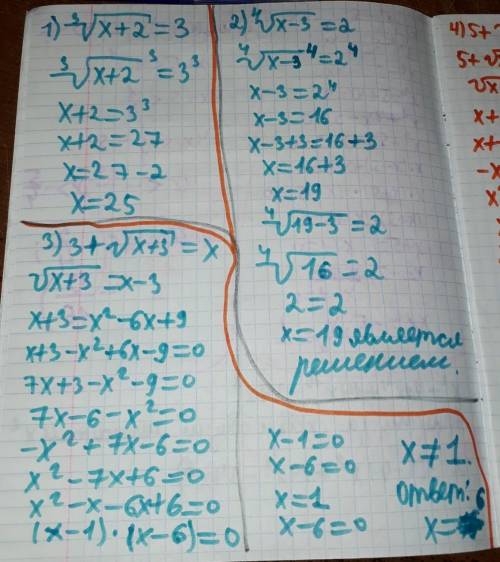 1) ∛(x+2) = 3
∛(x+2)³ = 3³
x+2=3³
x+2=27
x=27-2
x=25
2) ∜(x-3) = 2
∜(x-3)⁴ = 2⁴
x-3=2⁴
x-3=16
x-3+3=16+3
x=16+3
x=19
∜(19-3) = 2
∜16 = 2
2=2
x=19 является
решением.
3) 3+√(x+3) = x
√(x+3) = x-3
x+3=x²-6x+9
x+3-x²+6x-9=0
7x+3-x²-9=0
7x-6-x²=0
-x²+7x-6=0
x²-7x+6=0
x²-x-6x+6=0
(x-1)·(x-6)=0
x-1=0
x-6=0
x=1
x-6=0
x≠1.
Ответ:
x= 6
4) 5+
5+√
√x
x+
x+
-x
x